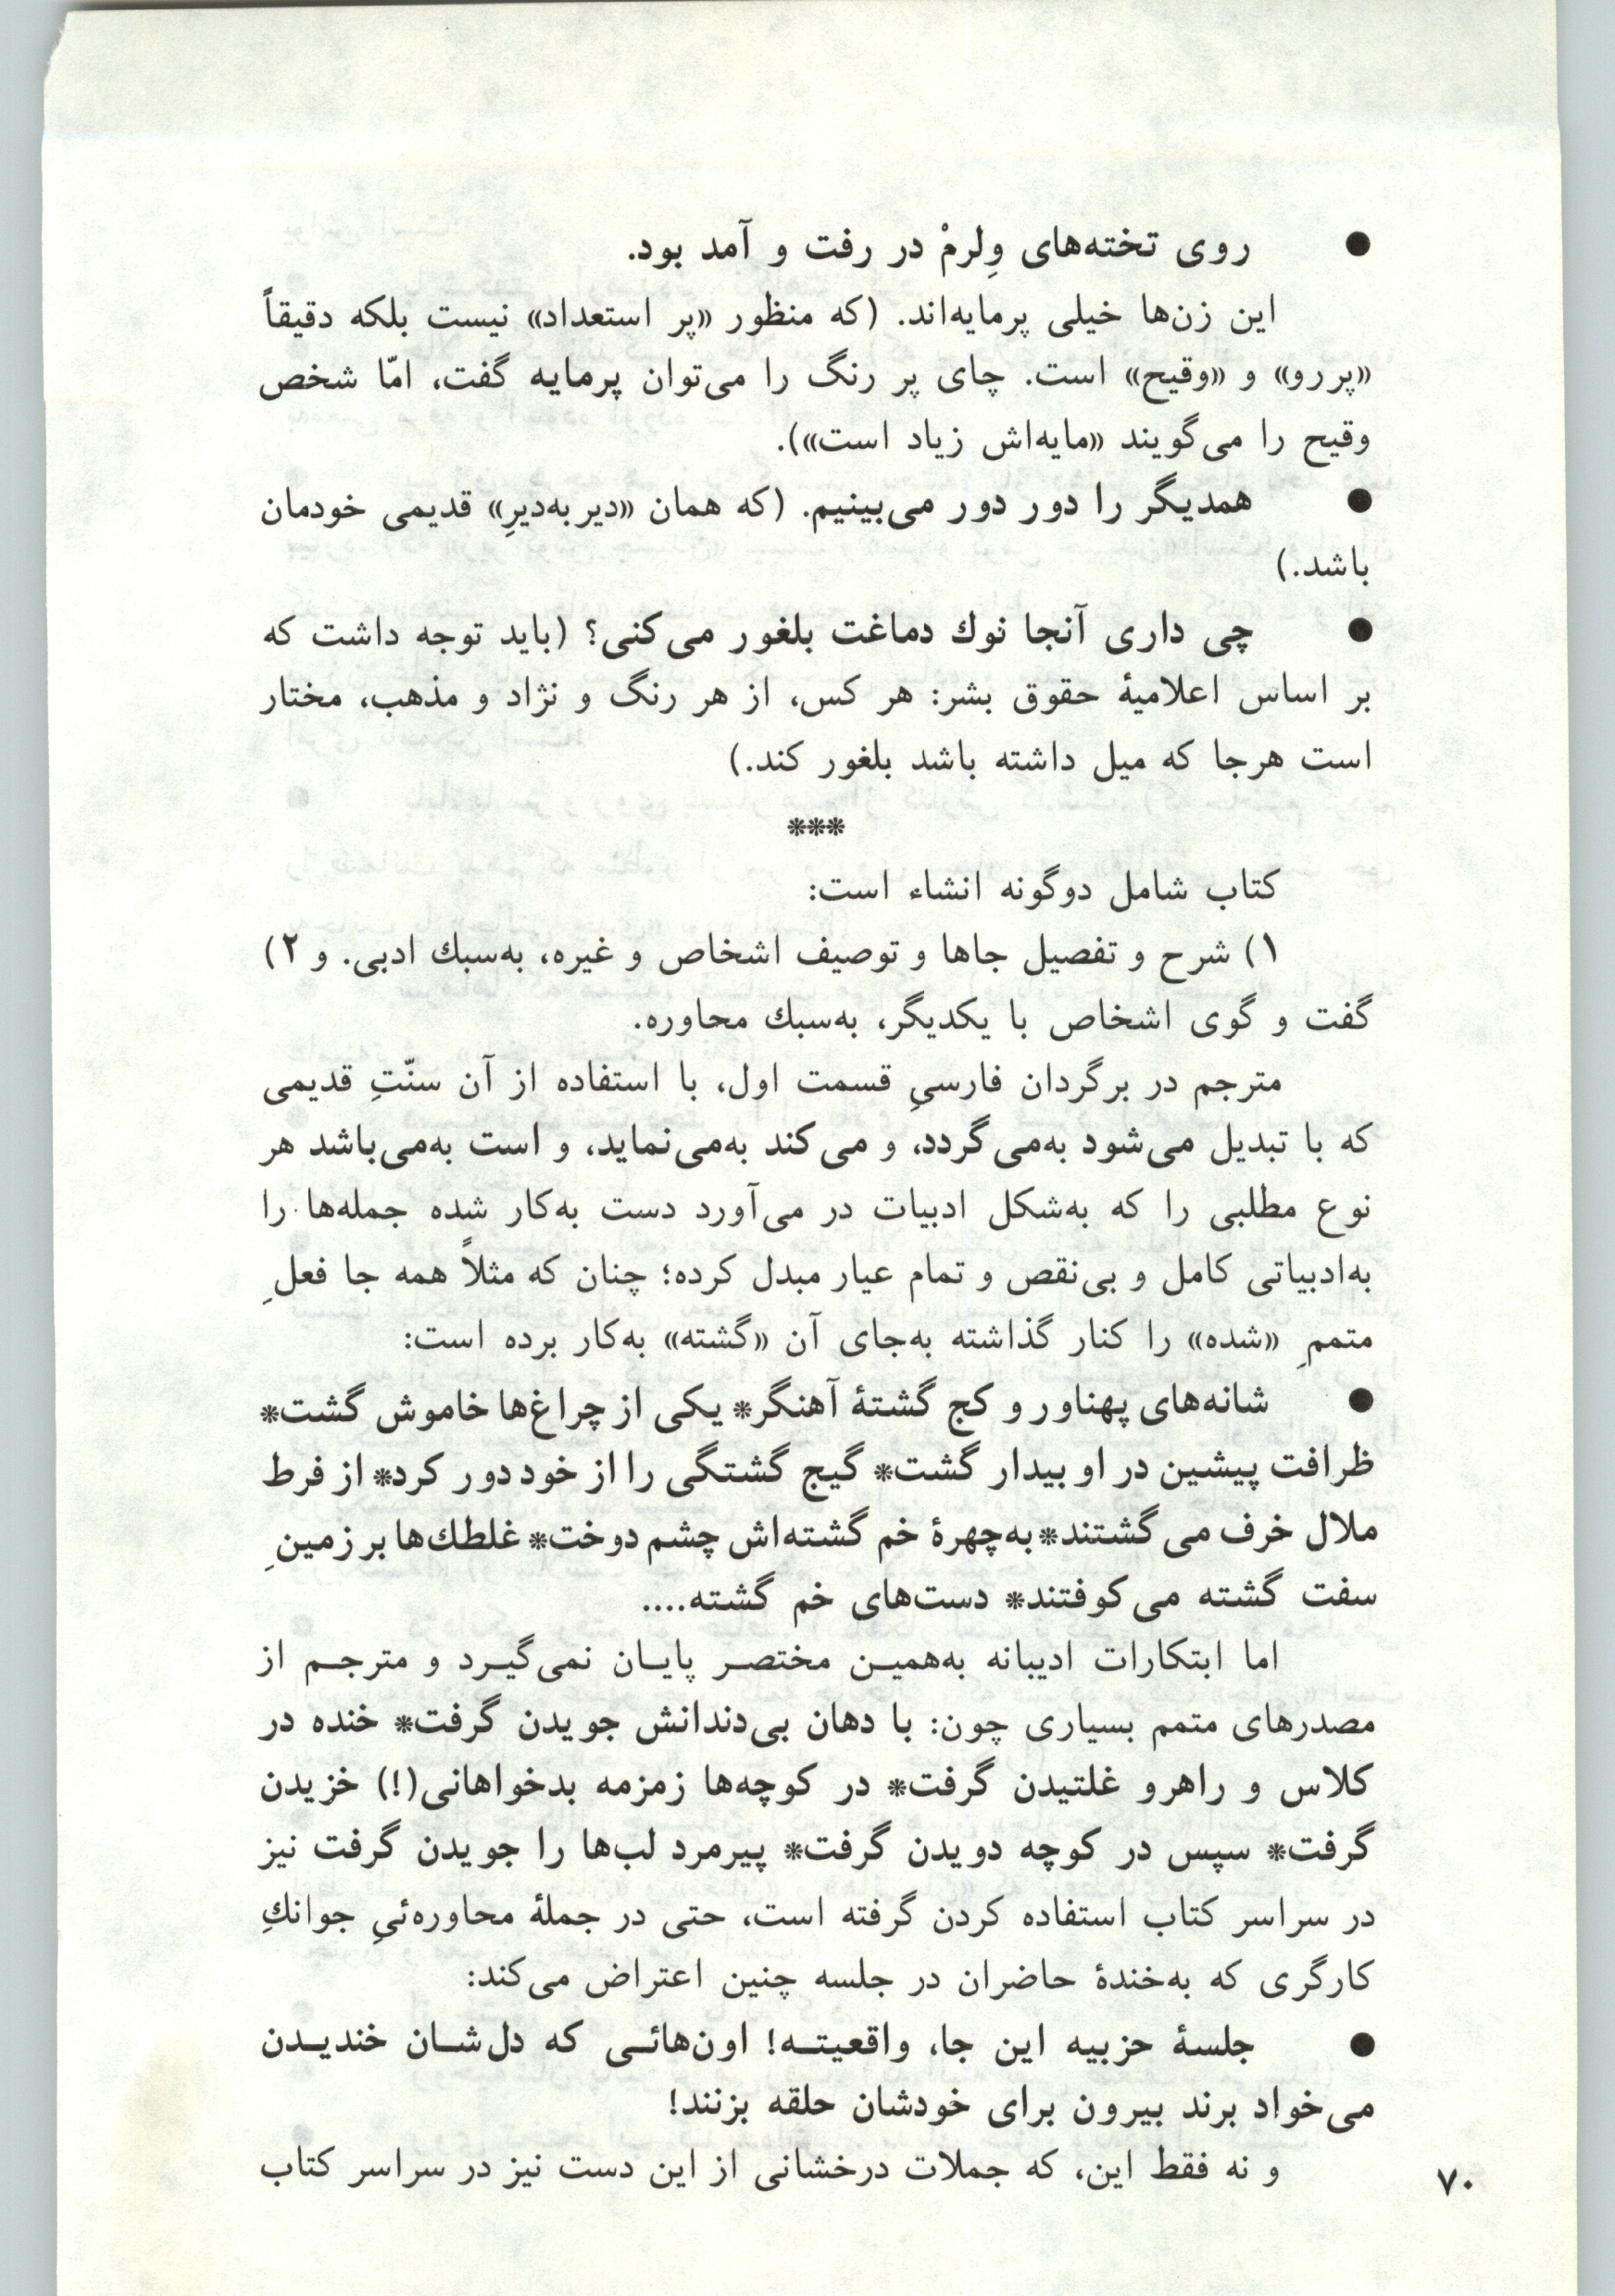 ● روی تخته‌های وِلرمْ در رفت و آمد بود.
این زن‌ها خیلی پرمایه‌اند. (که منظور «پر استعداد» نیست بلکه دقیقاً
«پررو» و «وقیح» است. چای پر رنگ را می‌توان پرمایه گفت، امّا شخص
وقیح را می‌گویند «مایه‌اش زیاد است»).
● همدیگر را دور دور می‌بینیم. (که همان «دیر به‌دیرِ» قدیمی خودمان
باشد.)
● چی داری آنجا نوك دماغت بلغور می‌کنی؟ (باید توجه داشت که
بر اساس اعلامیهٔ حقوق بشر: هر کس، از هر رنگ و نژاد و مذهب، مختار
است هرجا که میل داشته باشد بلغور کند.)
***
کتاب شامل دوگونه انشاء است:
۱) شرح و تفصیل جاها و توصیف اشخاص و غیره، به‌سبك ادبی. و ۲)
گفت و گوی اشخاص با یکدیگر، به‌سبك محاوره.
مترجم در برگردان فارسیِ قسمت اول، با استفاده از آن سنّتِ قدیمی
که با تبدیل می‌شود به‌می‌گردد، و می‌کند به‌می‌نماید، و است به‌می‌باشد هر
نوع مطلبی را که به‌شکل ادبیات در می‌آورد دست به‌کار شده جمله‌ها را
به‌ادبیاتی کامل و بی‌نقص و تمام عیار مبدل کرده؛ چنان که مثلاً همه جا فعلِ
متممِ «شده» را کنار گذاشته به‌جای آن «گشته» به‌کار برده است:
● شانه‌های پهناور و کج گشتهٔ آهنگر* یکی از چراغ‌ها خاموش گشت*
ظرافت پیشین در او بیدار گشت* گیج گشتگی را از خود دور کرد* از فرط
ملال خرف می‌گشتند* به‌چهرهٔ خم گشته‌اش چشم دوخت* غلطك‌ها بر زمینِ
سفت گشته می‌کوفتند* دست‌های خم گشته....
اما ابتکارات ادیبانه به‌همیـن مختصـر پایـان نمی‌گیـرد و مترجـم از
مصدرهای متمم بسیاری چون: با دهان بی‌دندانش جویدن گرفت* خنده در
کلاس و راهرو غلتیدن گرفت* در کوچه‌ها زمزمه بدخواهانی(!) خزیدن
گرفت* سپس در کوچه دویدن گرفت* پیرمرد لب‌ها را جویدن گرفت نیز
در سراسر کتاب استفاده کردن گرفته است، حتی در جملهٔ محاوره‌ئیِ جوانكِ
کارگری که به‌خندهٔ حاضران در جلسه چنین اعتراض می‌کند:
● جلسهٔ حزبیه این جا، واقعیتـه! اون‌هائـی که دل‌شـان خندیـدن
می‌خواد برند بیرون برای خودشان حلقه بزنند!
و نه فقط این، که جملات درخشانی از این دست نیز در سراسر کتاب
۷۰